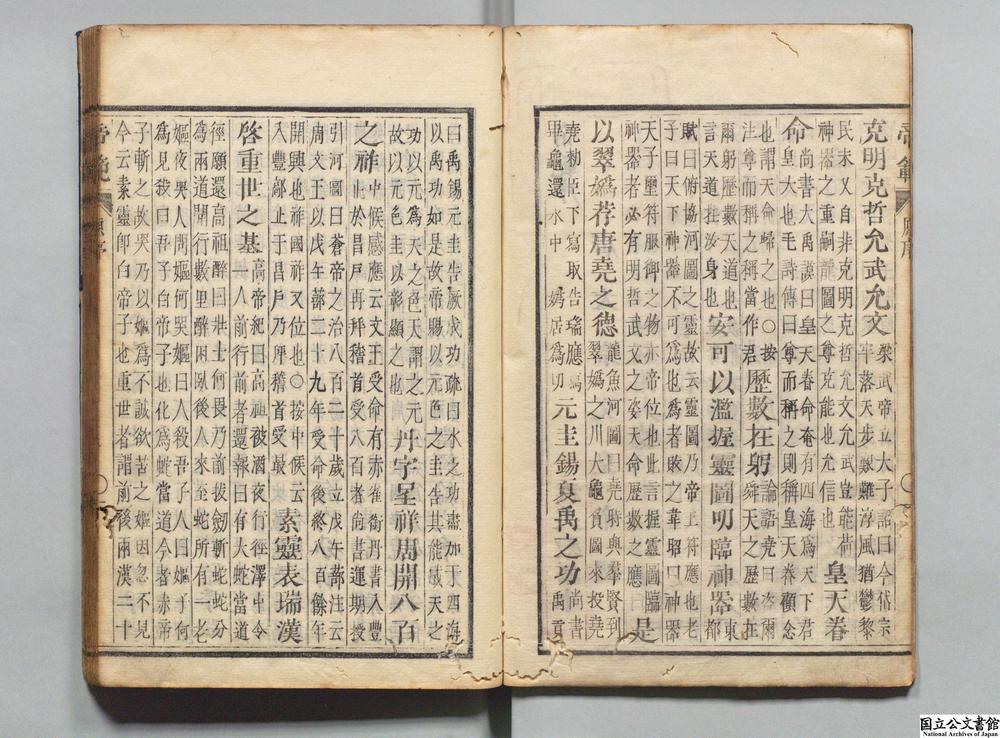 帝範
原序
克明克哲允武允文
梁武帝立大子詔曰今岱宗
牢落天步艱難淳風猶鬱黎
民未乂自非克明克哲允文允武豈能荷
神器之重嗣龍圖之尊克能也允信也
皇天眷
命
尚書大禹謨曰皇天眷命奄有四海為天下君
皇大也毛詩傳曰尊而稱之則稱皇天眷顧念
也謂天命歸之也○按
注尊而稱之當作君
歷數在躬
論語堯曰咨爾
舜天之歷數在
爾躬歷數天道也
言天道在汝身也
安可以濫握靈圖叨臨神器
東
都
賦曰俯協河圖之靈故云靈圖乃帝王符應也老
子曰天下神器不可為也為者敗之韋昭曰神器
天子璽符服御之物亦帝位也此言握靈圖臨
神器者必有明哲武文之姿天命歷數之尊
是
以翠嬀荐唐堯之德
龍魚河圖曰堯時與羣賢到
翠嬀之川大龜負圖來投堯
堯勑臣下寫取告瑞應
畢龜還水中
嬀居為切
元圭錫夏禹之功
尚書
禹貢
曰禹錫元圭告厥成功疏曰水之功盡加于四海
以禹功如是故帝賜以元色之圭告其能成天之
功以元為天之色天謂之元
故以元色圭以彰顯之也
丹字呈祥周開八百
之祚
中候感應云文王受命有赤雀銜丹書入豐
止於昌戶再拜稽首受八百者尚書運期授
引河圖曰蒼帝之治八百二十歲立戊午蔀注云
周文王以戊午蔀二十九年受命後終八百餘年
開興也祚國祚又位也○按中候云
入豐鄗止于昌戶乃拜稽首受最
素靈表瑞漢
啓重世之基
高帝紀曰高祖被酒夜行徑澤中令
一人前行前者還報曰有大蛇當道
徑願還高祖醉曰壯士何畏乃前拔劍斬蛇蛇分
為兩道開行數里醉困臥後人來至蛇所有一老
嫗夜哭人問嫗何哭嫗曰人殺吾子人曰嫗子何
為見殺曰吾子白帝子也化為蛇當道今者赤帝
子斬之故哭乃以嫗為不誠欲苦之嫗因忽不見
今云素靈即白帝子也重世者謂前後兩漢二十
帝範
原序
国立公文書館
National Archives of Japan